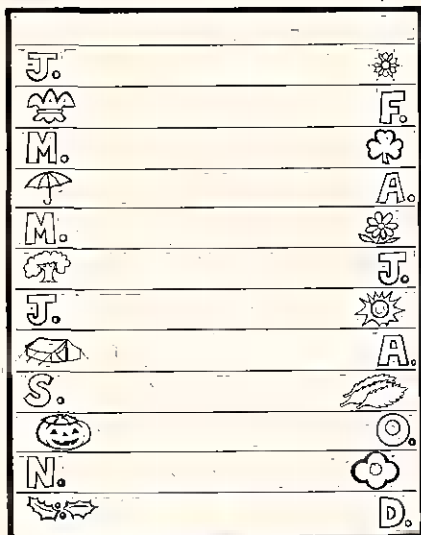 J.
F.
M.
A.
M.
J.
J.
A.
S.
O.
N.
D.